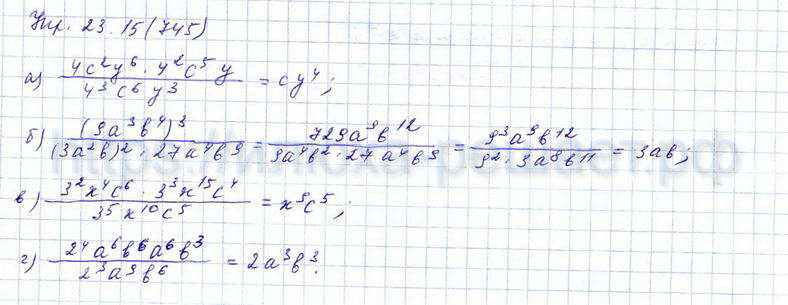 Упр. 23.15(745)
а) 4c²y⁶ · 4²c⁵y / 4³c⁶y³ = cy⁴;
б) (9a³b⁴)³ / (3a²b)² · 27a⁴b⁹ = 729a⁹b¹² / 9a⁴b² · 27a⁴b⁹ = 9³a⁹b¹² / 9² · 3a⁸b¹¹ = 3ab;
в) 3²x⁴c⁶ · 3³x¹⁵c⁴ / 3⁵x¹⁰c⁵ = x⁹c⁵;
г) 2⁴a⁶b⁶a⁶b³ / 2³a⁹b⁶ = 2a³b³.